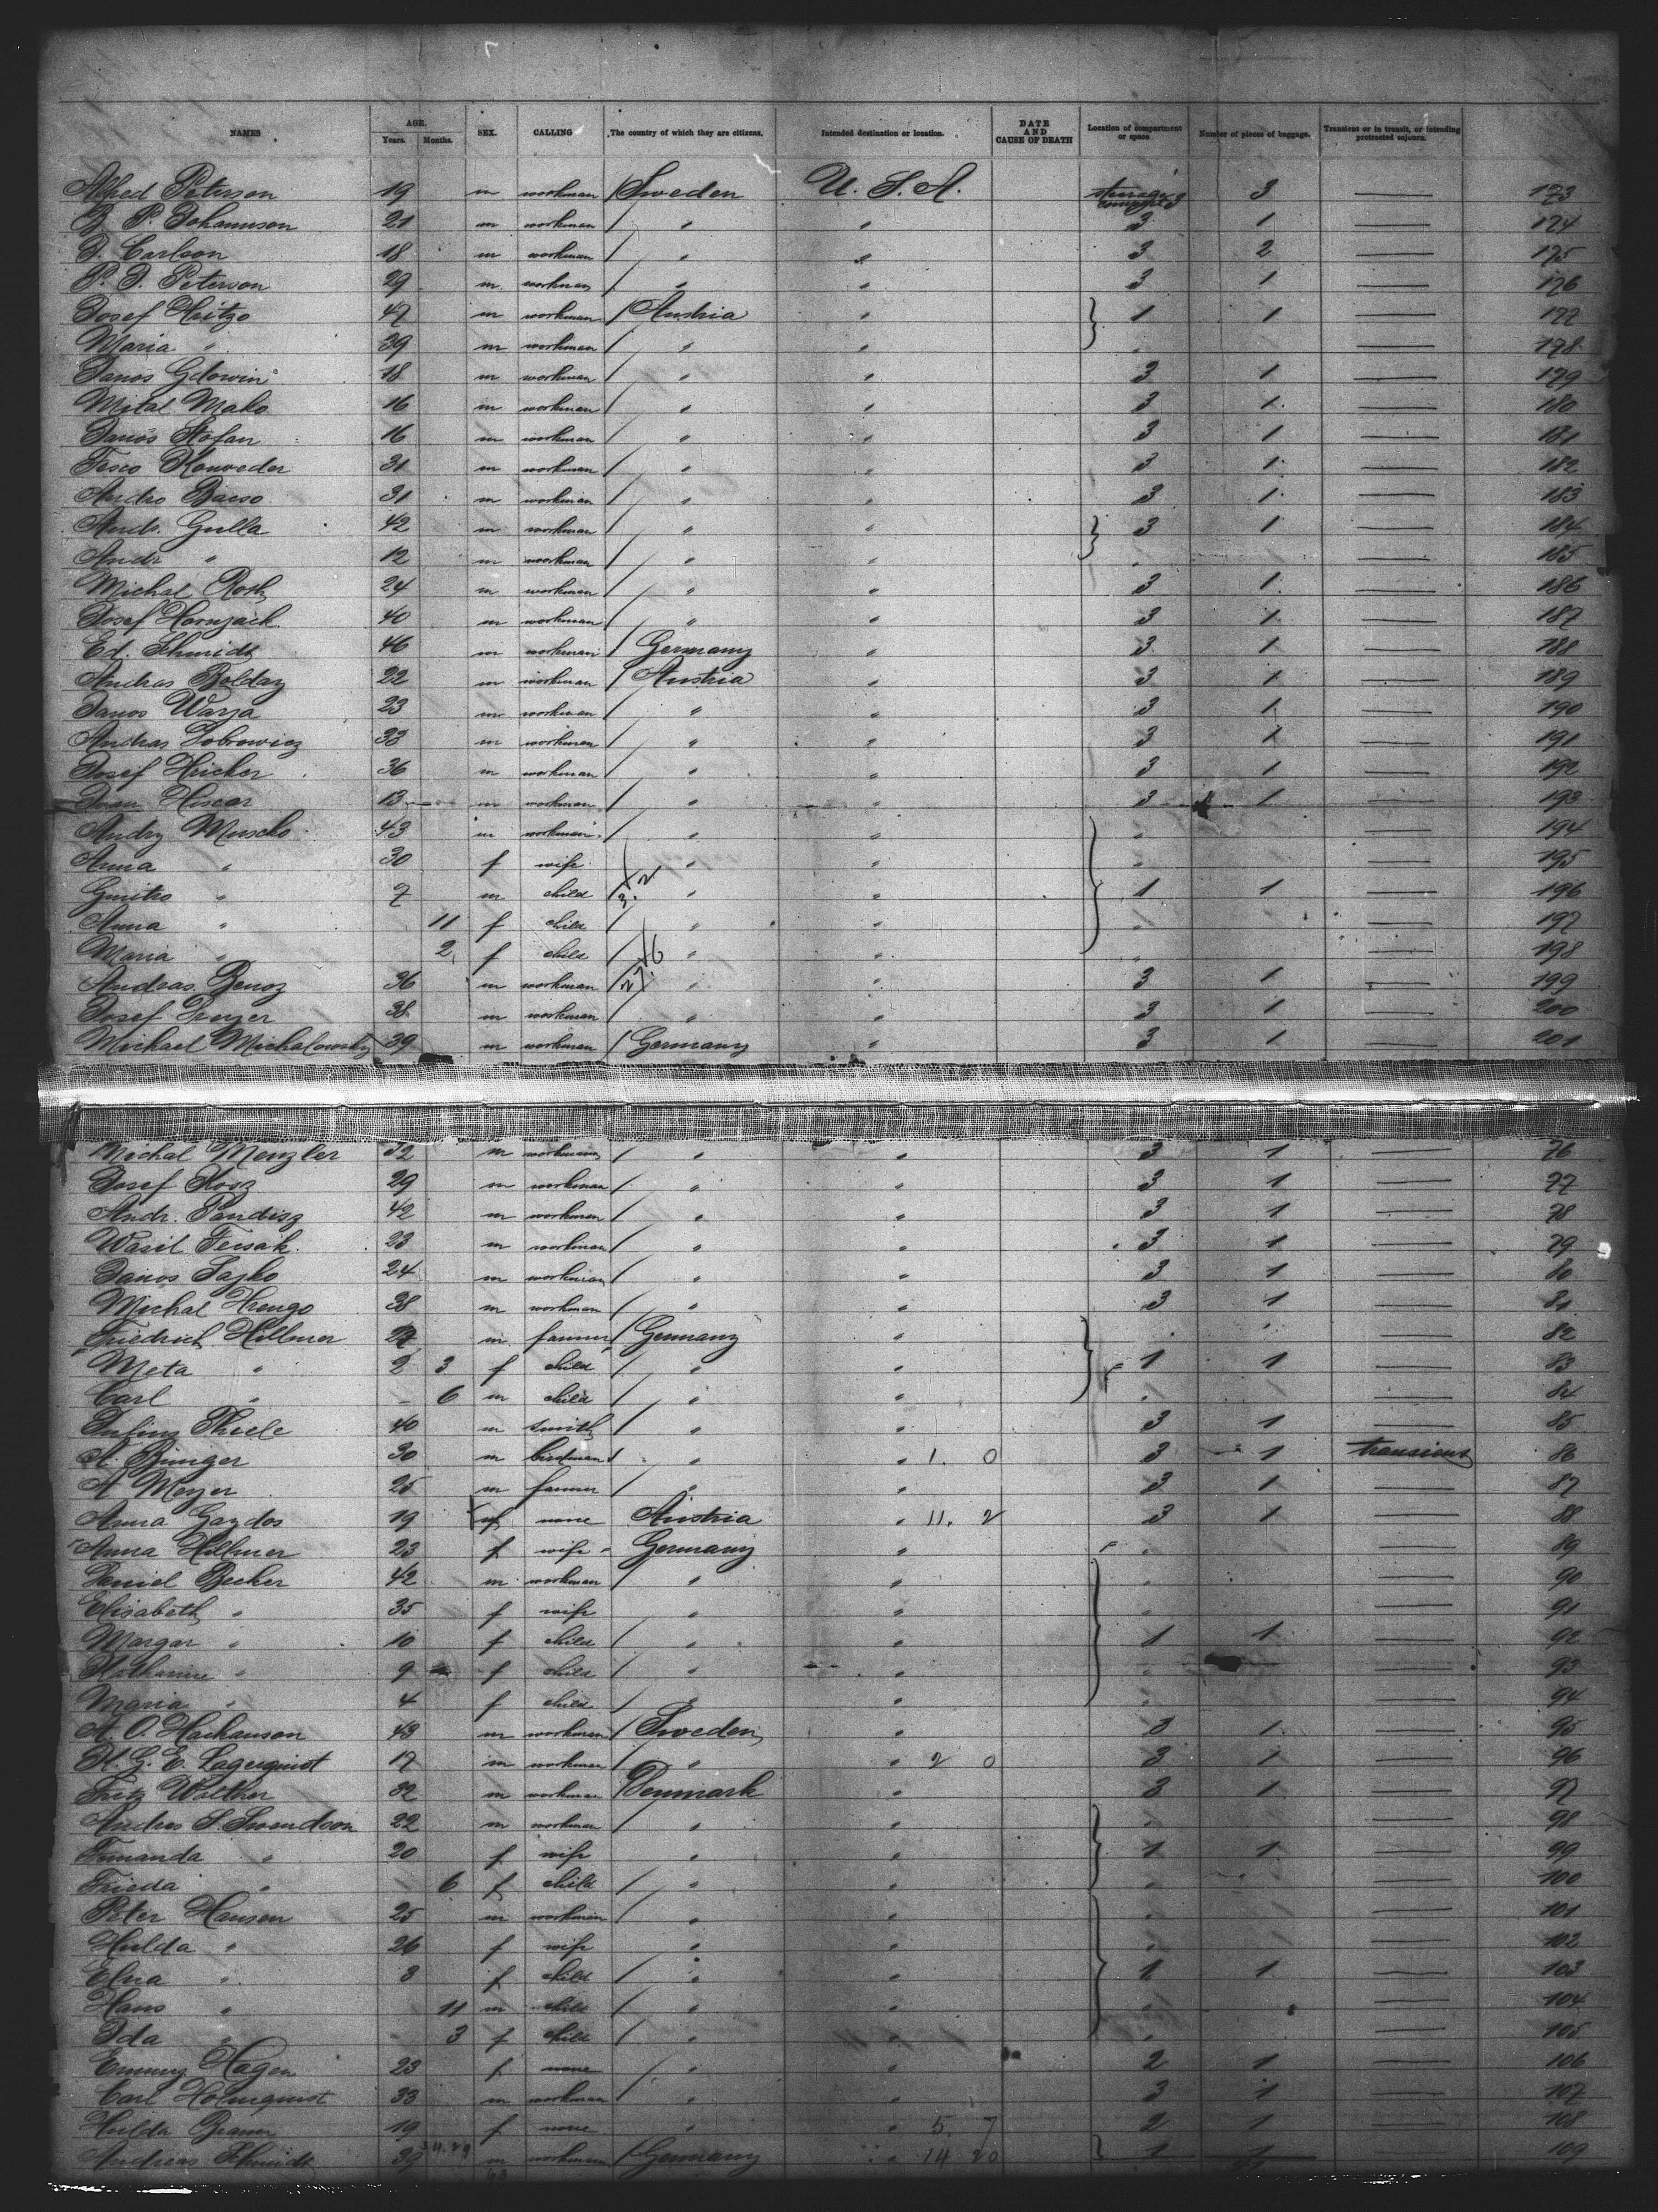 NAMES AGE. Years. Months. SEX. CALLING The country of which they are citizens. Intended destination or location. DATE AND CAUSE OF DEATH Location of compartment or space Number of pieces of baggage. Transient or in transit, or intending protracted sojourn.
Alfred Peterson 19 m workman / Sweden U. S. A. steerage 3 3 — 173
P. Johannson 21 m workman / " " 3 1 — 174
Carlson 18 m workman / " " 3 2 — 175
Peterson 29 m workman / " " 3 1 — 176
Josef Hritzo 47 m workman / Austria " 1 1 — 177
Maria " 39 m workman / " " " — 178
Janos Gdowin 18 m workman / " " 3 1 — 179
Mital Mako 16 m workman / " " 3 1 — 180
Janos Stofan 16 m workman / " " 3 1 — 181
31 m workman / " " 3 1 — 182
Andro Bacso 31 m workman / " " 3 1 — 183
Andr. Gulla 42 m workman / " " 3 1 — 184
Andr " 12 m workman / " " " — 185
Michal Rosh 24 m workman / " " 3 1 — 186
Josef Hornjack 40 m workman / " " 3 1 — 187
Ed. Schmidt 46 m workman / Germany " 3 1 — 188
Andras Bolday 22 m workman / Austria " 3 1 — 189
Janos Warja 23 m workman / " " 3 1 — 190
Andras 33 m workman / " " 3 1 — 191
Josef Hricher 36 m workman / " " 3 1 — 192
Hiscar 13 m workman / " " 3 1 — 193
Andry Muscho 43 m workman / " " " — 194
Anna " 30 f wife " " " — 195
Gmitro " 7 m child / " " 1 1 — 196
Anna " 11 f child / " " " — 197
Maria " 2 f child / " " " — 198
Andreas Benoz 36 m workman / " " 3 1 — 199
Josef Freyer 38 m workman / " " 3 1 — 200
Michael Michalowsky 39 m workman / Germany " 3 1 — 201
Michal Menzler 32 m workman / " " 3 1 — 76
Josef Kosz 29 m workman / " " 3 1 — 77
Andr. Pandisz 42 m workman / " " 3 1 — 78
Wasil Feisak 23 m workman / " " 3 1 — 79
Janos Sajko 24 m workman / " " 3 1 — 80
Michal Hrengo 38 m workman / " " 3 1 — 81
Friedrich Hillmer 27 m farmer / Germany " " — 82
Meta " 2 3 f child / " " 1 1 — 83
Carl " - 6 m child / " " " — 84
Julius Thiele 40 m smith / " " 3 1 — 85
A. Bünger 30 m birdman " " 1. 0 3 1 transient 86
A Meyer 25 m farmer / " " 3 1 — 87
Anna Gaydos 19 f none Austria " 11. 2 3 1 — 88
Anna Hillmer 23 f wife Germany " " — 89
Daniel Becher 42 m workman / " " " — 90
Elisabeth " 35 f wife " " " — 91
Margar " 10 f child / " " 1 1 — 92
Katharine " 9 f child / " " " — 93
Maria " 4 f child / " " " — 94
A. O. Hachanson 43 m workman / Sweden " 3 1 — 95
K. G. E. Lagerquist 17 m workman / " " 2 0 3 1 — 96
Fritz Walther 32 m workman Denmark " 3 1 — 97
Andres S. Swendson 22 m workman / " " " — 98
" 20 f wife " " 1 1 — 99
Frieda " 6 f child / " " " — 100
Peter Hansen 25 m workman / " " " — 101
Hulda " 26 f wife " " " — 102
Elna " 3 f child / " " 1 1 — 103
Hans " 11 m child / " " " — 104
Ida " 3 f child / " " " — 105
Hagen 23 f none / " " 2 1 — 106
Carl Holmquist 33 m workman / " " 3 1 — 107
Hulda 19 f none " " 5. 7 2 1 — 108
Andreas Schmidt 39 m workman / Germany " 14 20 1 1 — 109